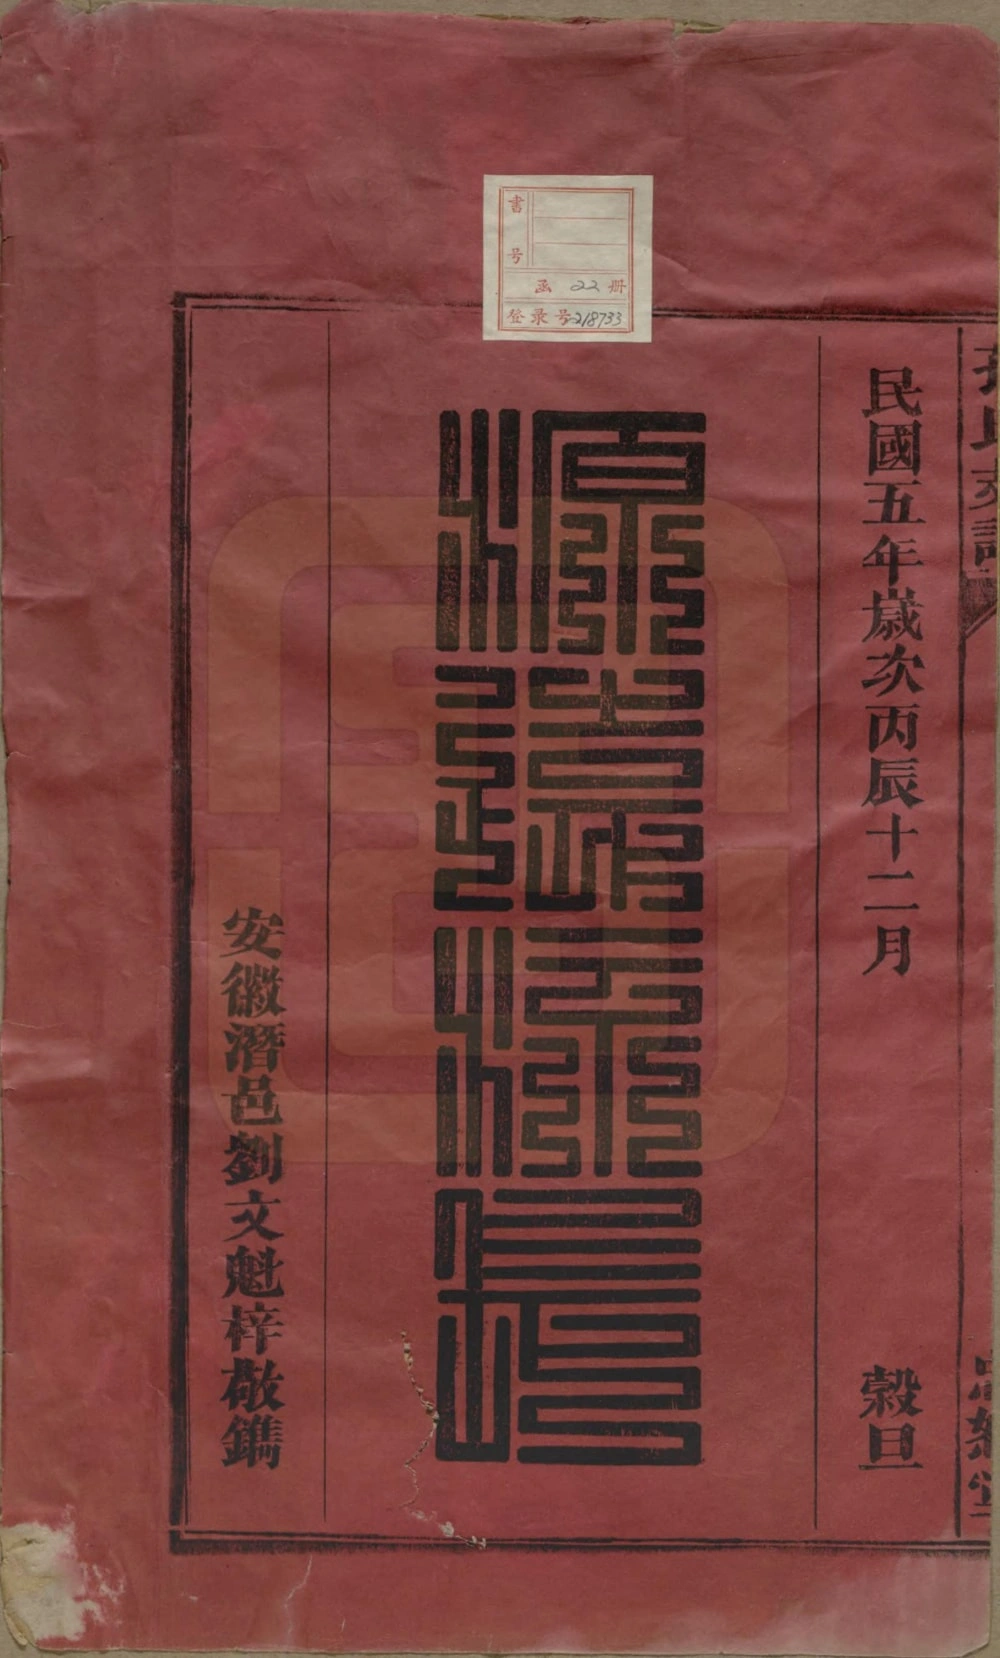 書号
函 22 册
登录号 218733
民國五年歲次丙辰十二月 穀旦
源遠流長
安徽潛邑劉文魁梓敬鐫